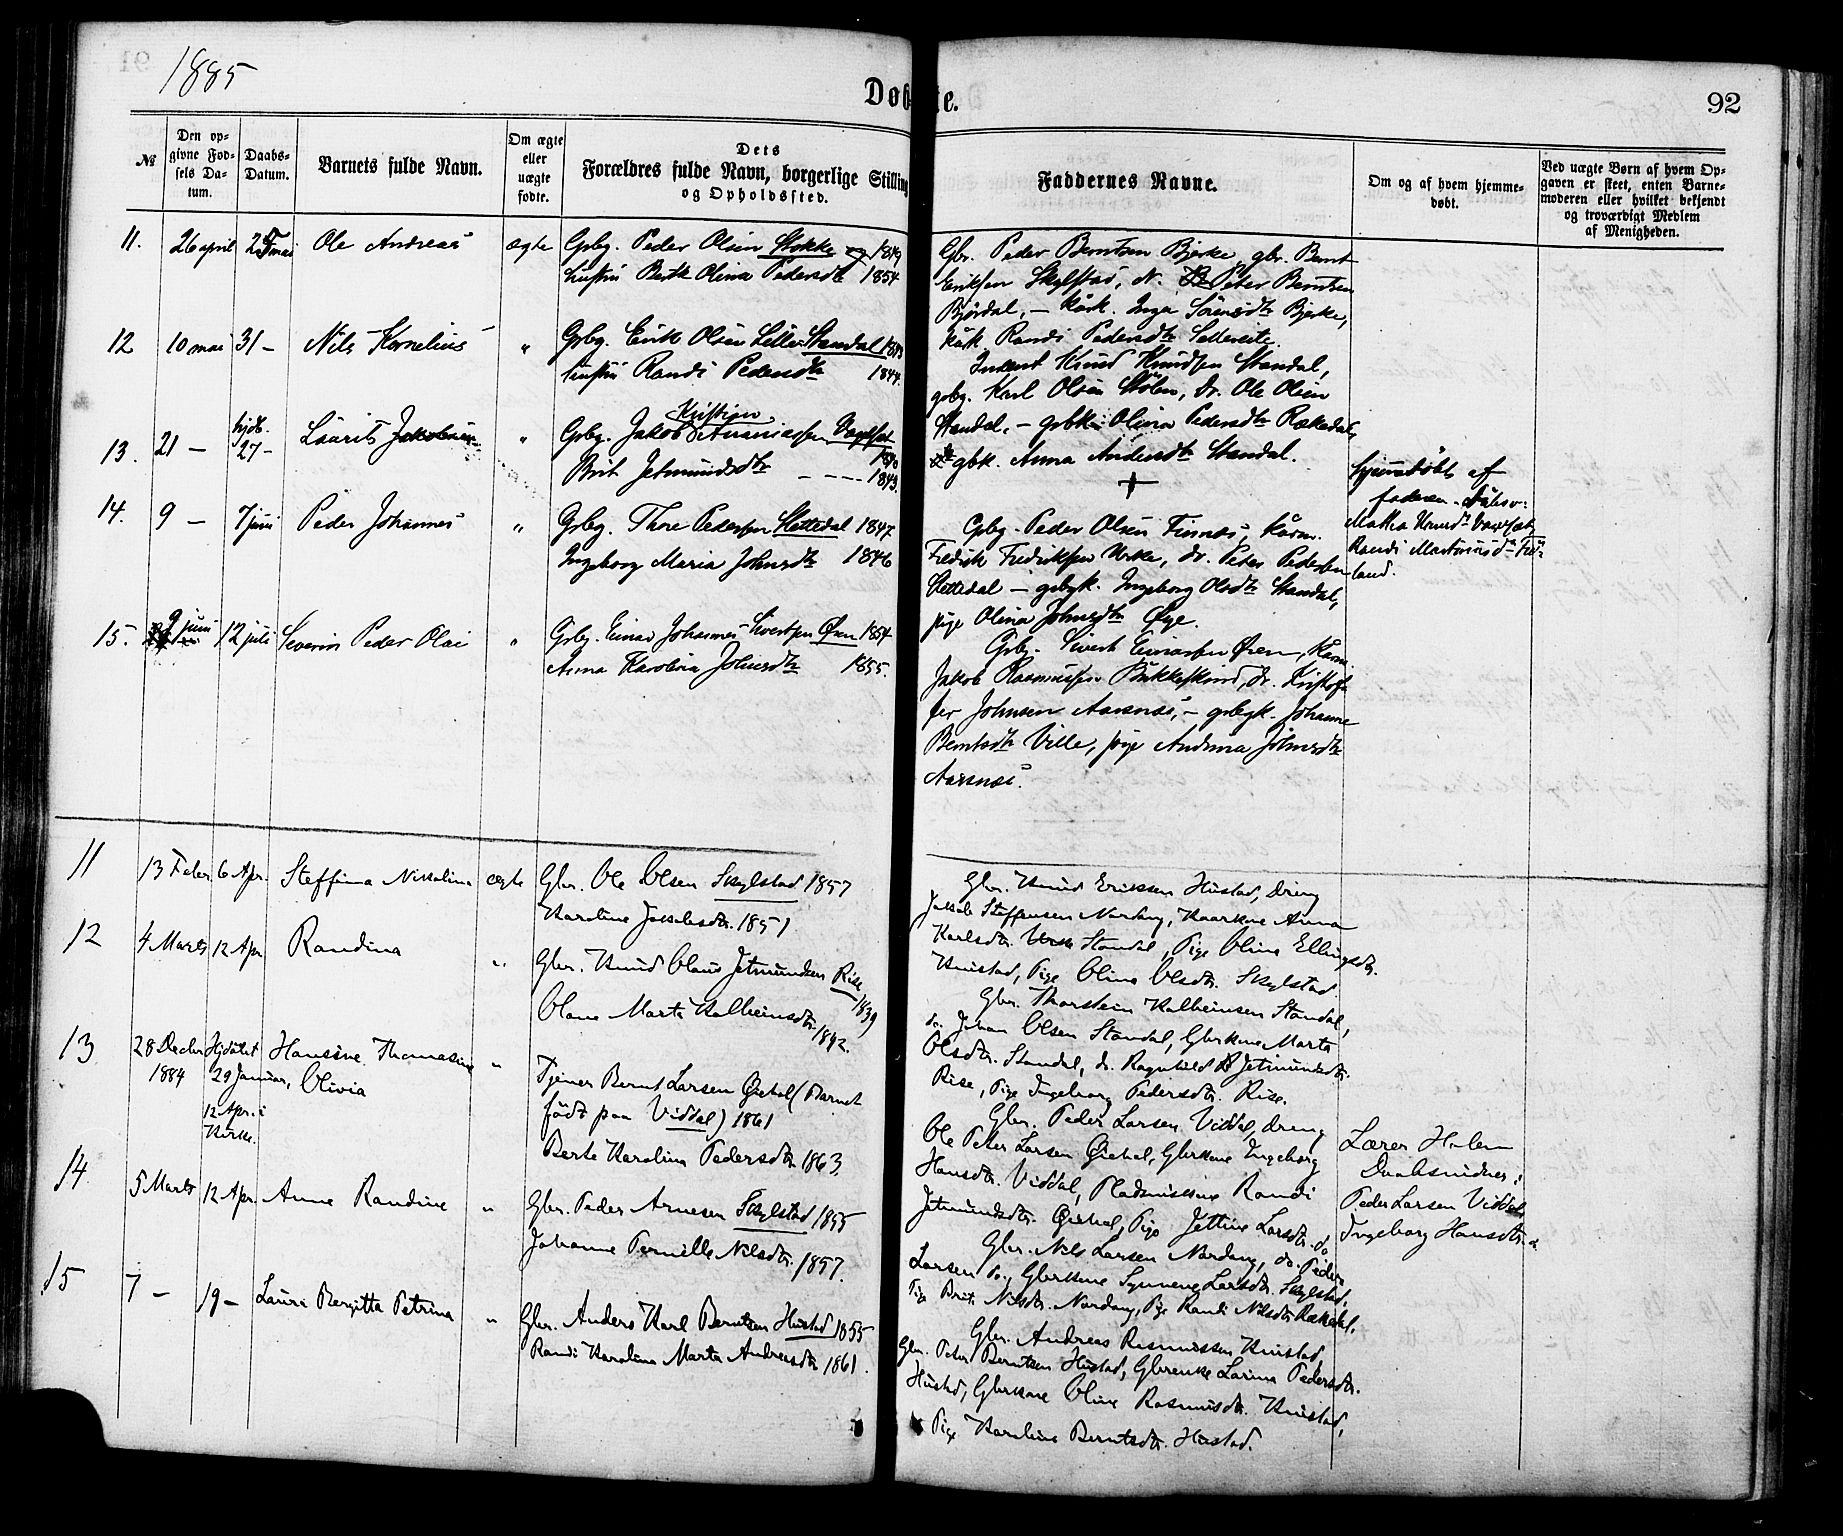 1885
Døbte.
92
№
Den opgivne Fødsels Datum.
Daabs-Datum.
Barnets fulde Navn.
Om ægte eller uægte fødte.
Dets Forældres fulde Navn, borgerlige Stilling og Opholdssted.
Faddernes Navne.
Om og af hvem hjemmedøbt.
Ved uægte Børn af hvem Opgaven er skeet, enten Barnemoderen eller hvilket bekjendt og troværdigt Medlem af Menigheden.
11. 26 april 25 mai Ole Andreas ægte Gbrg. Peder Olsen Stokke og 1849
hustru Berte Olina Pedersdtr 1854
Gbr. Peder Berntsen Bjerke, gbr. Bernt
Eriksen Skylstad, N. Peter Berntsen
Bjørdal, – kårk. Inga Sörensdtr Bjerke,
kårk Randi Pedersdtr Sætereite.
12 10 mai 31 – Nils Kornelius " Gbrg. Erik Olsen Lille Standal
hustru Randi Pedersdtr 1844.
Inderst Knud Knudsen Standal,
gbrg. Karl Olsen Stølen, dr. Ole Olsen
Standal, – gbk. Olivia Pedersdtr Rækedal,
gbk. Anna Andersdtr Standal.
13. 21 – hjdb. 27 – Laurits Jakobus " Gbrg. Jakob Kristian Ananiassen
Brit Jetmundsdtr – – – – 1843.
+
Hjemmedöbt af
faderen
14. 9 – 7 juni Peder Johannes " Gbrg. Thore Pedersen Slettedal 1847
Ingeborg Maria Johnsdtr 1846
Gbrg. Peder Olsen Finnes, kårm.
Fredrik Fredriksen Urke, dr. Peter Pedersen
Slettedal – gbrgk. Ingeborg Olsdtr Standal,
pige Olina Johnsdtr Øye.
15. 9 juni 12 juli Severin Peder Olai " Gbrg. Einar Johannes Sivertsen Øren 1854
Anna Karolina Johnsdtr 1855.
Gbrg. Sivert Einarsen Øren, kårm.
Jakob Rasmussen Bukkeskind, dr. Kristof-
fer Johnsen Aarsnæs, – gbrgk. Johanne
Berntsdtr Ville, pige Andrina Johnsdtr
Aarsnæs.
11 13 Feber 6 Apr. Steffina Nikoline ægte Gbr. Ole Olsen Skylstad 1857
Karoline Jakobsdtr. 1851
Gbr. Knud Eriksen Hustad, Dreng
Jakob Steffensen Nordang, Kaarkone Anna
Karlsdtr. Standal, Pige Oline Ellingsdtr.
Knistad, Pige Oline Olsdtr. Skylstad
12 4 Marts 12 Apr Randina " Gbr. Knud Olaus Jetmundsen Rise 1839
Olave Marta Kolbeinsdtr. 1842.
Gbr. Thorstein Kolbeinsen Standal,
do. Johan Olsen Standal, Gbrkone Marta
Olsdtr. Standal, do. Ragnhild Jetmundsdtr.
Rise, Pige Ingeborg Pedersdtr. Rise.
13 28 Decbr 1884 Hjdöbt 29 Januar, 12 Apr. i Kirke. Hansine Thomasine Olivia " Tjener Bernt Larsen Øiehol (Barnet
födt paa Viddal) 1861
Berte Karoline Pedersdtr. 1863
Gbr. Peder Larsen Viddal, dreng
Ole Peter Larsen Øiehol, Gbrkone Ingeborg
Hansdtr. Viddal, Pladsmiskone Randi
Jetmundsdtr. Øiehol, Pige Jettine Larsdtr. do
Lærer Holen
Daabsvidner:
Peder Larsen Viddal
Ingeborg Hansdtr.
14. 5 Marts 12 Apr. Anne Randine " Gbr. Peder Arnesen Skylstad 1855
Johanne Pernille Nilsdtr. 1857.
Gbr. Nils Larsen Nordang, do. Peder
Larsen do., Gbrkone Synneve Larsdtr. Skylstad,
Pige Brit Nilsdtr. Nordang, Pige Randi Nilsdtr. Rækedal.
15 7 – 19 – Laura Bergitta Petrina " Gbr. Anders Karl Berntsen Hustad 1855
Randi Karoline Marta Andreasdtr. 1861.
Gbr. Andreas Rasmussen Knistad
Gbr. Peter Berntsen Hustad, Gbrenke Larine Pedersdtr.
Hustad, Gbrkone Oline Rasmusdtr. Knistad,
Pige Karoline Berntsdtr. Hustad.